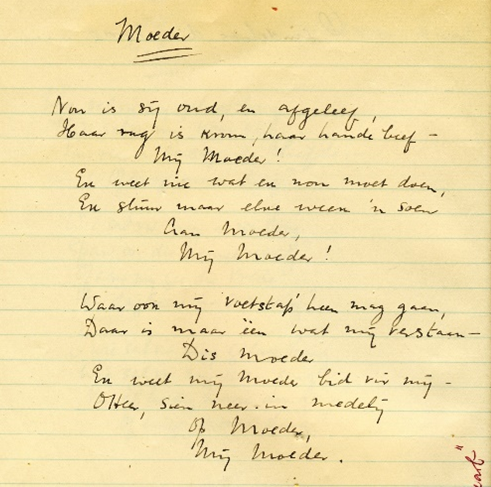 Moeder
Nou is sy oud, en afgeleef,
Haar rug is krom, haar hande beef –
My Moeder!
En weet nie wat en nou moet doen,
En stuur maar elke week 'n soen
Aan Moeder,
My Moeder!
Waar ook my voetstap heen mag gaan,
Daar is maar één wat my verstaan –
Dis Moeder
En weet my Moeder bid vir my –
O Heer, sien neer in medely
Op Moeder,
My Moeder.